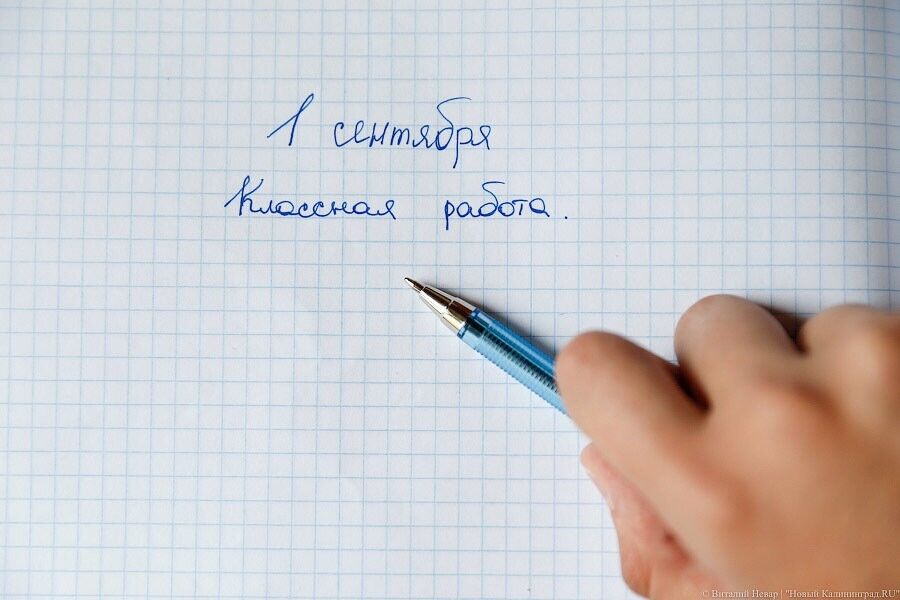 1 сентября
Классная работа.
© Виталий Невар | "Новый Калининград.RU"